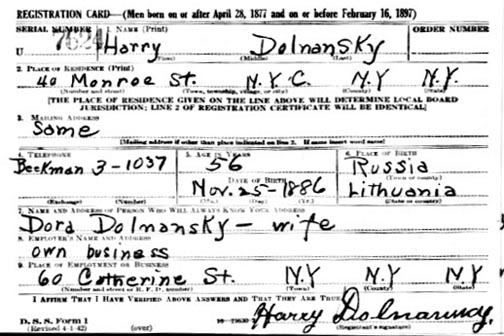 REGISTRATION CARD—(Men born on or after April 28, 1877 and on or before February 16, 1897)
SERIAL NUMBER 1. NAME (Print) ORDER NUMBER
U Harry Dolnansky
(First) (Middle) (Last)
2. PLACE OF RESIDENCE (Print)
40 Monroe St. N.Y.C. N.Y N.Y.
(Number and street) (Town, township, village, or city) (County) (State)
[THE PLACE OF RESIDENCE GIVEN ON THE LINE ABOVE WILL DETERMINE LOCAL BOARD
JURISDICTION; LINE 2 OF REGISTRATION CERTIFICATE WILL BE IDENTICAL]
3. MAILING ADDRESS
Same
[Mailing address if other than place indicated on line 2. If same insert word same]
4. TELEPHONE 5. AGE IN YEARS 6. PLACE OF BIRTH
Beekman 3-1037 56 Russia
DATE OF BIRTH (Town or county)
Nov. 25-1886 Lithuania
(Exchange) (Number) (Mo.) (Day) (Yr.) (State or country)
7. NAME AND ADDRESS OF PERSON WHO WILL ALWAYS KNOW YOUR ADDRESS
Dora Dolmansky - wife
8. EMPLOYER'S NAME AND ADDRESS
own business
9. PLACE OF EMPLOYMENT OR BUSINESS
60 Catherine St. N.Y N.Y N.Y
(Number and street or R. F. D. number) (Town) (County) (State)
I AFFIRM THAT I HAVE VERIFIED ABOVE ANSWERS AND THAT THEY ARE TRUE.
D. S. S. Form 1 Harry
(Revised 4-1-42) (over) (Registrant's signature)